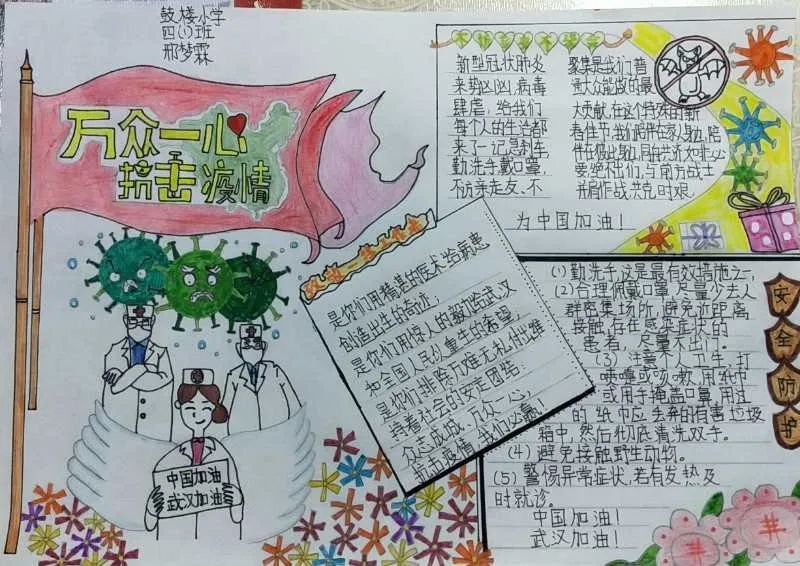 鼓楼小学
四(1)班
邢梦霖
万众一心
抗击疫情
新型冠状肺炎
来势凶凶,病毒
肆虐,给我们
每个人的生活都
来了一记急刹车,
勤洗手戴口罩,
不访亲走友、不
聚集是我们普
通大众能做的最
大贡献,在这个特殊的新
春佳节,我们陪伴在家人身边,陪
伴在彼此身边,同舟共济,如非必
要绝不出们,与前方战士
并肩作战,共克时艰。
为中国加油!
致敬
是你们用精湛的医术给病患
创造出生的奇迹;
是你们用惊人的毅力给武汉
和全国人民以重生的希望,
是你们排除万难无私付出维
持着社会的安定团结;
众志成城,万众一心,
抗击疫情,我们必赢!
中国加油
武汉加油
安全防护
(1)勤洗手,这是最有效措施之一,
(2)合理佩戴口罩,尽量少去人
群密集场所,避免近距离
接触,存在感染症状的
患者,尽量不出门。
(3)注意个人卫生,打
喷嚏或咳嗽,用纸巾
或用手掩盖口罩,用过
的纸巾应丢弃的有害垃圾
箱中,然后彻底清洗双手。
(4)避免接触野生动物。
(5)警惕异常症状,若有发热及
时就诊。
中国加油!
武汉加油!